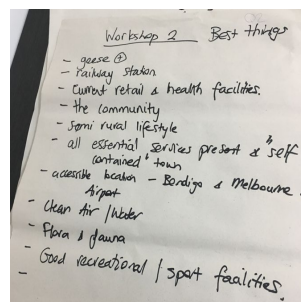 Workshop 2 Best things
- geese ⊕
- railway station
- Current retail & health facilities.
- the community
- Semi rural lifestyle
- all essential services present & "self
contained" town
- accessible location - Bendigo & Melbourne.
Airport
- Clean Air / Water
- Flora & fauna
- Good recreational / sport facilities.
-